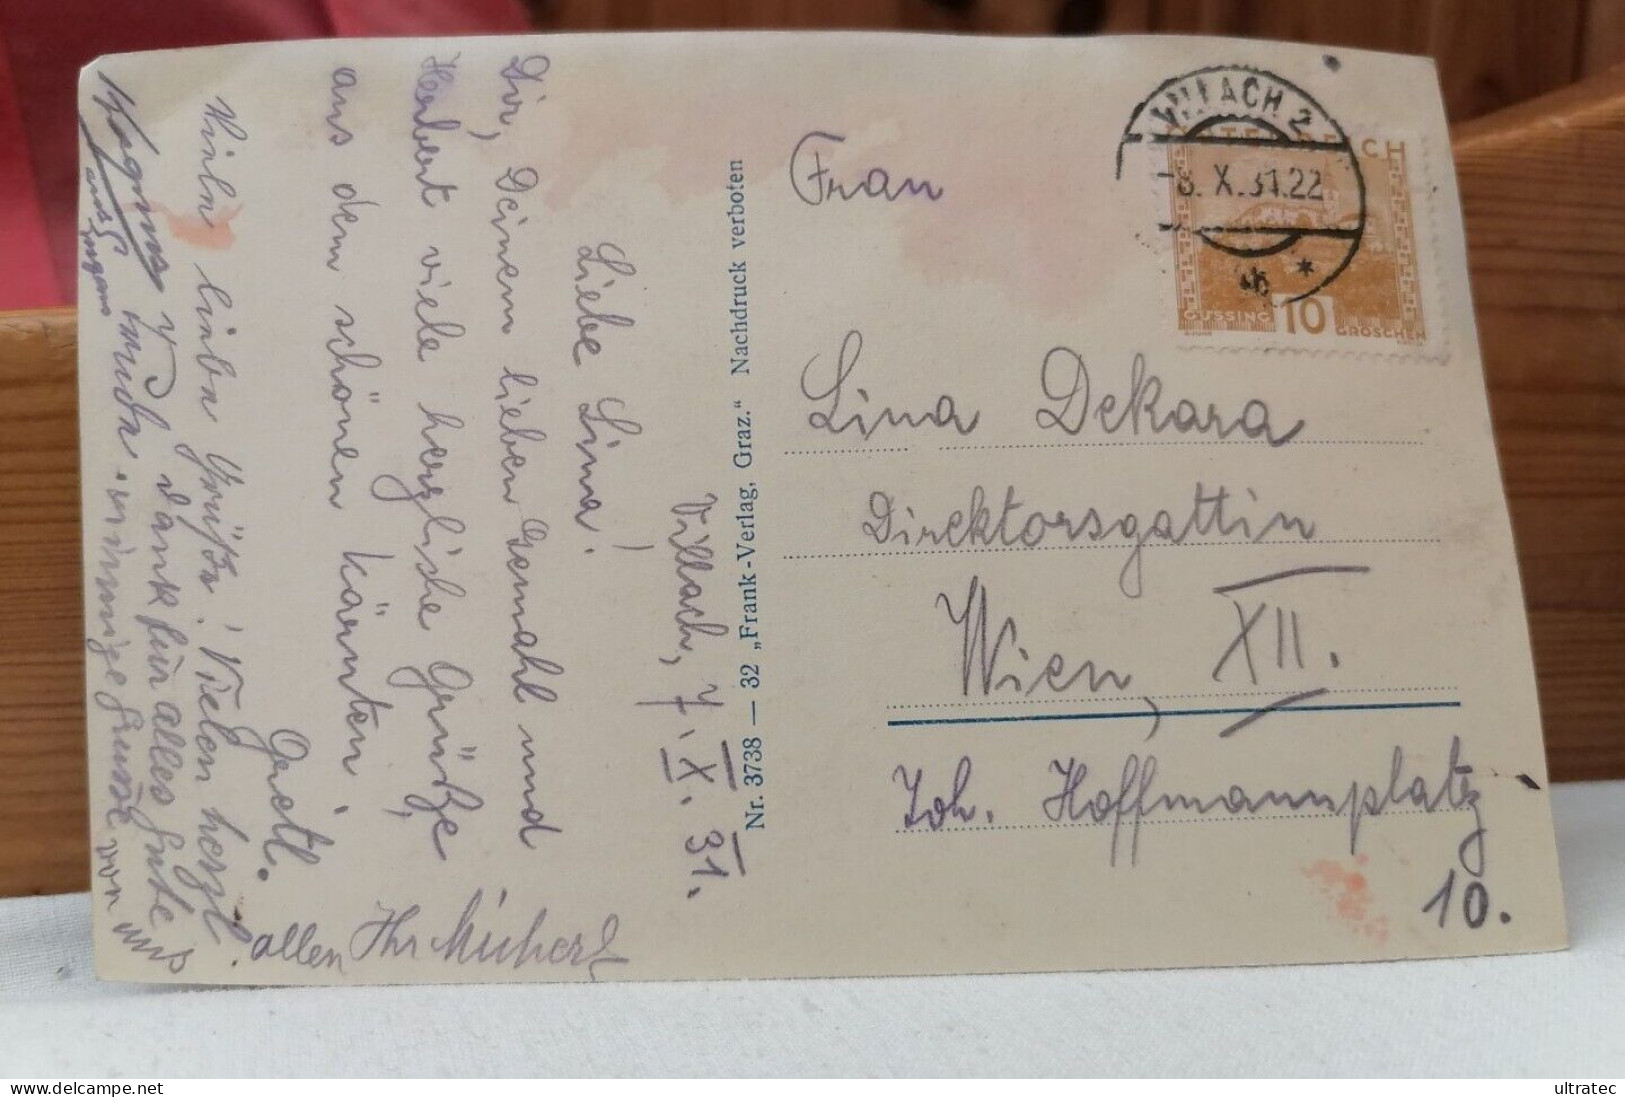 Villach, 7. X. 31.
Liebe Lina!
Dir, Deinem lieben Gemahl und
Herbert viele herzliche Grüße,
aus dem schönen Kärnten.
Gretl.
Ihr
Viele liebe Grüße! Vielen herzl
Dank für alles Gute
innige Grüße von uns
allen
Nr. 3738 — 32 „Frank-Verlag, Graz.“ Nachdruck verboten
VILLACH 2
-8. X. 31.22
*
ÖSTERREICH
GÜSSING 10 GROSCHEN
Frau
Lina Dekara
Direktorsgattin
Wien, XII.
Joh. Hoffmannplatz
10.
delcampe.net
ultratec